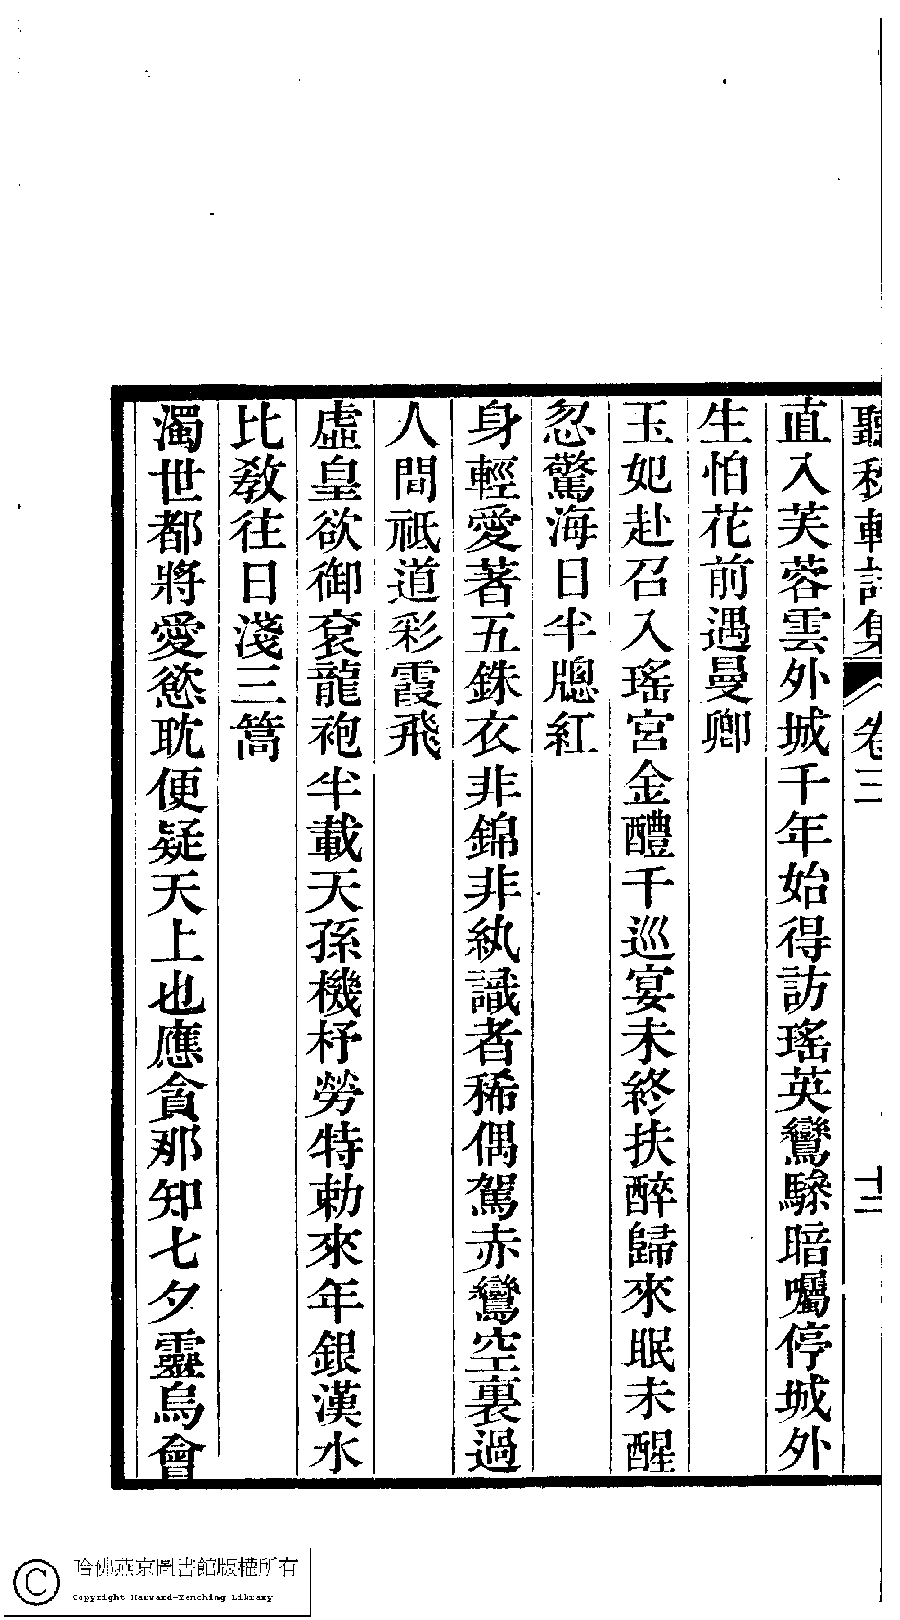 聽秋軒詩集 卷三 十二
直入芙蓉雲外城千年始得訪瑤英鸞驂暗囑停城外
生怕花前遇曼卿
玉妃赴召入瑤宮金醴千巡宴未終扶醉歸來眠未醒
忽驚海日半牕紅
身輕愛著五銖衣非錦非紈識者稀偶駕赤鸞空裏過
人間祗道彩霞飛
虛皇欲御袞龍袍半載天孫機杼勞特勅來年銀漢水
比教往日淺三篙
濁世都將愛慾耽便疑天上也應貪那知七夕靈烏會
哈佛燕京圖書館版權所有
Copyright Harvard-Yenching Library